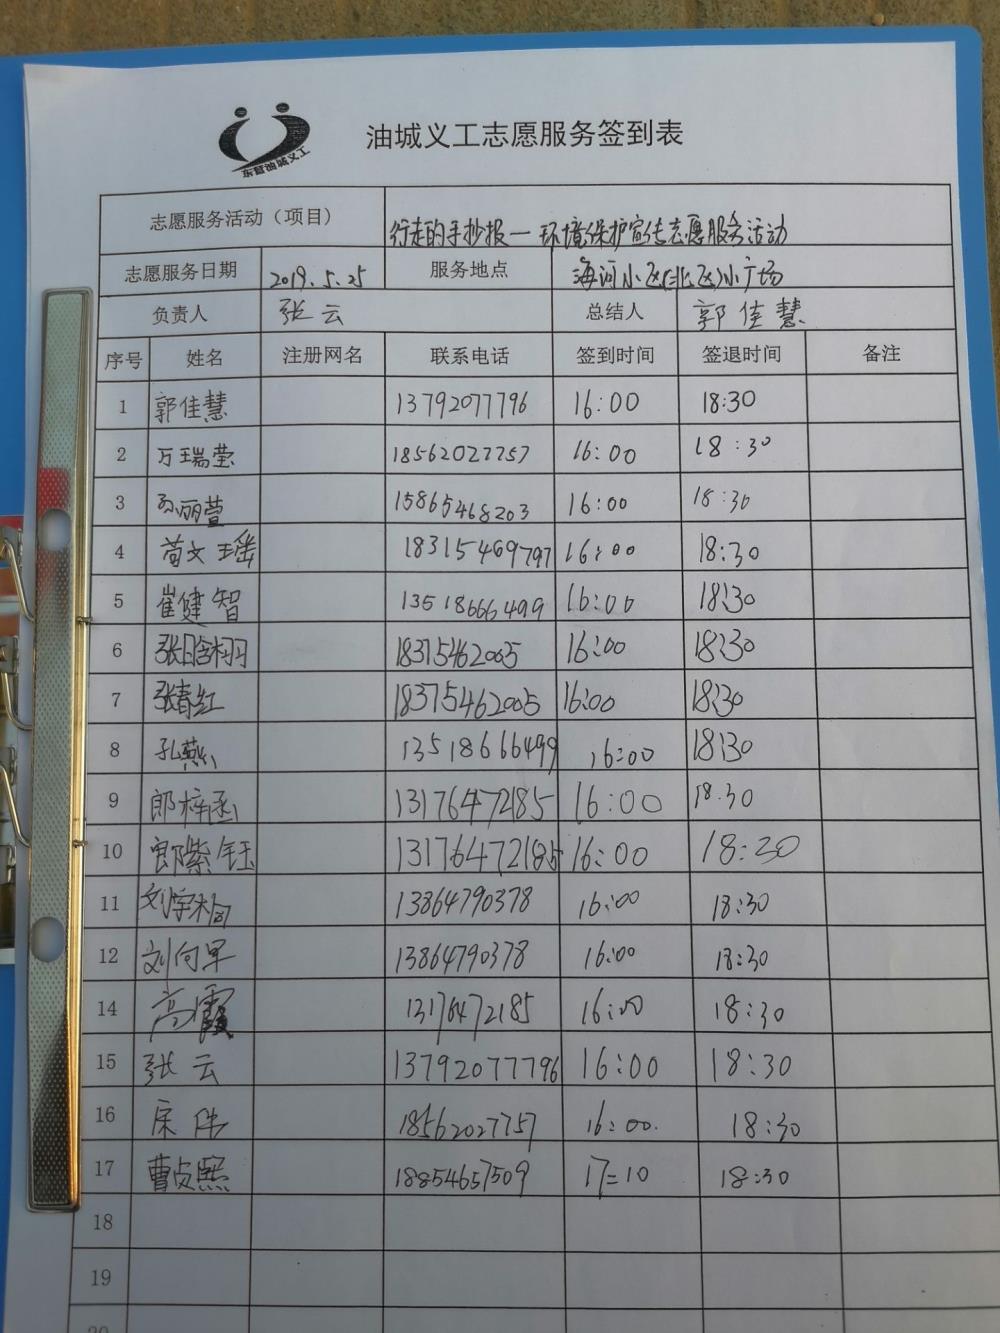 东营油城义工
油城义工志愿服务签到表
志愿服务活动（项目） 行走的手抄报一环境保护宣传志愿服务活动
志愿服务日期 2019.5.25 服务地点 海河小区(北区)小广场
负责人 张云 总结人 郭佳慧
序号 姓名 注册网名 联系电话 签到时间 签退时间 备注
1 郭佳慧 13792077796 16:00 18:30
2 万瑞莹 18562027757 16:00 18:30
3 孙丽萱 15865468203 16:00 18:30
4 苟文瑶 18315469797 16:00 18:30
5 崔健智 13518666499 16:00 18:30
6 张晗栩 18315462005 16:00 18:30
7 张春红 18375462005 16:00 18:30
8 孔燕 13518666499 16:00 18:30
9 郎梓函 13176472185 16:00 18.30
10 郎紫钰 13176472185 16:00 18:30
11 刘宇桐 13864790378 16:00 18:30
12 刘向军 13864790378 16:00 18:30
14 高霞 13176472185 16:00 18:30
15 张云 13792077796 16:00 18:30
16 18562027757 16:00. 18:30
17 曹贞熙 18854657509 17=10 18:30
18
19
20